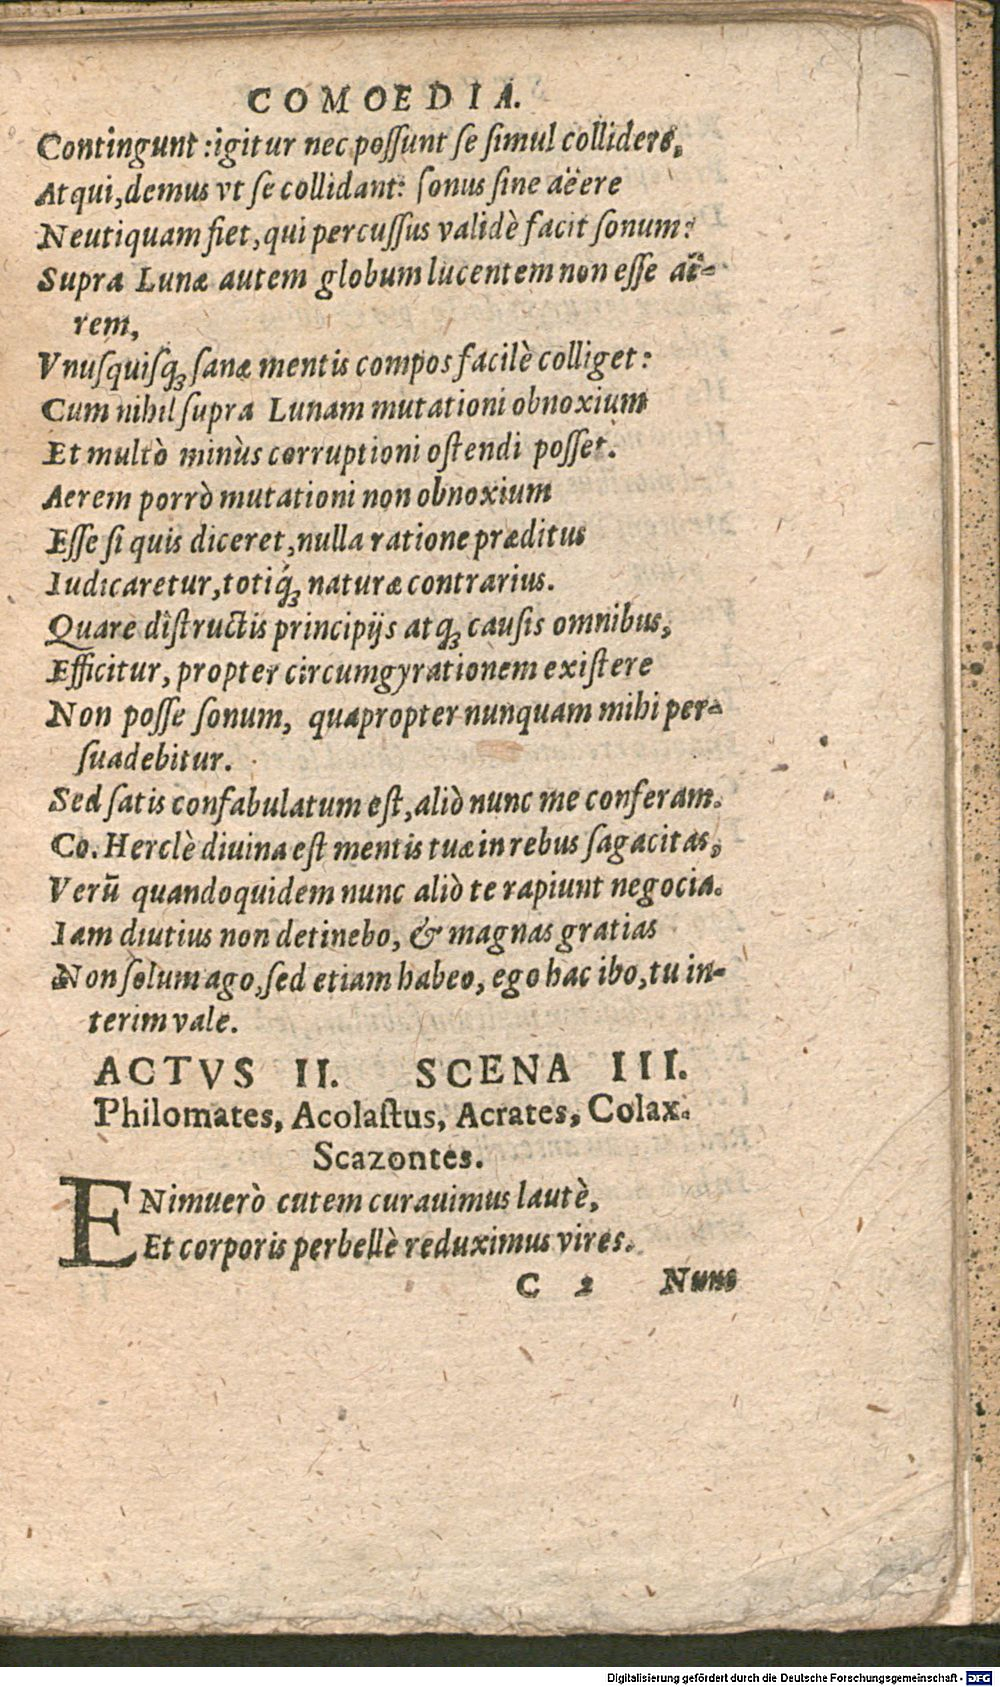 COMOEDIA.
Contingunt :igitur nec poſſunt ſe ſimul collidere,
Atqui,demus vt ſe collidant: ſonus ſine aëere
Neutiquam fiet,qui percuſſus validè facit ſonum?
Supra Lunæ autem globum lucentem non eſſe aë-
rem,
Vnuſquiſqꝫ ſanæ mentis compos facilè colliget:
Cum nihil ſupra Lunam mutationi obnoxium
Et multò minùs corruptioni oſtendi poſſet.
Aerem porrò mutationi non obnoxium
Eſſe ſi quis diceret,nulla ratione præditus
Iudicaretur,totiq́ꝫ naturæ contrarius.
Quare dîſtructis principijs atqꝫ cauſis omnibus,
Efficitur, propter circumgyrationem exiſtere
Non poſſe ſonum, quapropter nunquam mihi per-
ſuadebitur.
Sed ſatis confabulatum eſt,aliò nunc me conferam.
Co. Herclè diuina eſt mentis tuæ in rebus ſagacitas,
Verũ quandoquidem nunc aliò te rapiunt negocia.
Iam diutius non detinebo, & magnas gratias
Non ſolum ago,ſed etiam habeo, ego hac ibo,tu in-
terim vale.
ACTVS II. SCENA III.
Philomates, Acolaſtus, Acrates, Colax.
Scazontes.
ENimuerò cutem curauimus lautè,
Et corporis perbellè reduximus vires.
C 2 Nunc
Digitalisierung gefördert durch die Deutsche Forschungsgemeinschaft - DFG